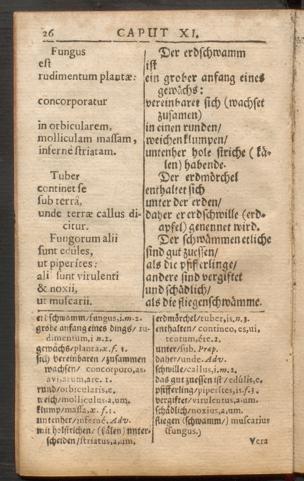 26 CAPUT XI.
Fungus
est
rudimentum plantæ:
concorporatur
in orbicularem,
molliculam massam,
infernè striatam.
Tuber
continet se
sub terrâ,
unde terræ callus di-
citur.
Fungorum alii
sunt edules,
ut piperites:
alii sunt virulenti
& noxii,
ut muscarii.
Der erdschwamm
ist
ein grober anfang eines
gewächs:
vereinbaret sich (wachset
zusamen)
in einen runden/
weichen klumpen/
untenher hole striche (kä-
len) habende.
Der erdmörchel
enthaltet sich
unter der erden/
daher er erdschwille (erd-
apfel) genennet wird.
Der schwämmen etliche
sind gut zuessen/
als die pfifferlinge/
andere sind vergiftet
und schädlich/
als die fliegenschwämme.
erdschwamm/fungus,i.m.2.
grobe anfang eines dings/ ru-
dimentum,i n.2.
gewächs/planta,æ.f.1.
sich vereinbaren/zusammen
wachsen/ concorporo,as-
avi,atum,are. 1.
rund/orbicularis,e.
weich/molliculus,a,um,
klump/massa,æ. f.1.
untenher/infernè. Adv.
mit holstrichen/(kälen) unter-
scheiden/striatus,a,um.
erdmörchel/tuber,is.n.3.
enthalten/ contineo,es,ui,
tentum,ére.2.
unter/sub. Præp.
daher/unde. Adv.
schwille/callus,i.m.2.
das gut zuessen ist/edûlis,e.
pfifferling/piperites,is.f.3.
vergiftet/virulentus,a-um.
schädlich/noxius,a,um.
fliegen (schwamm/) muscarius
(fungus.)
Vera